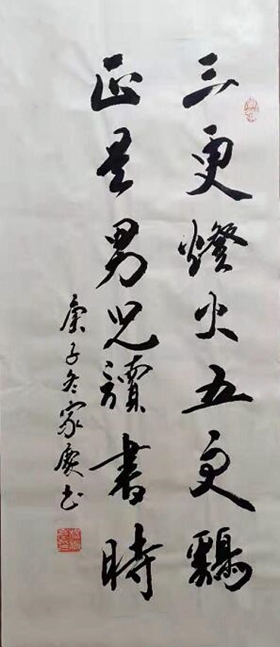 三更燈火五更鷄
正是男兒讀書時
庚子冬家慶书